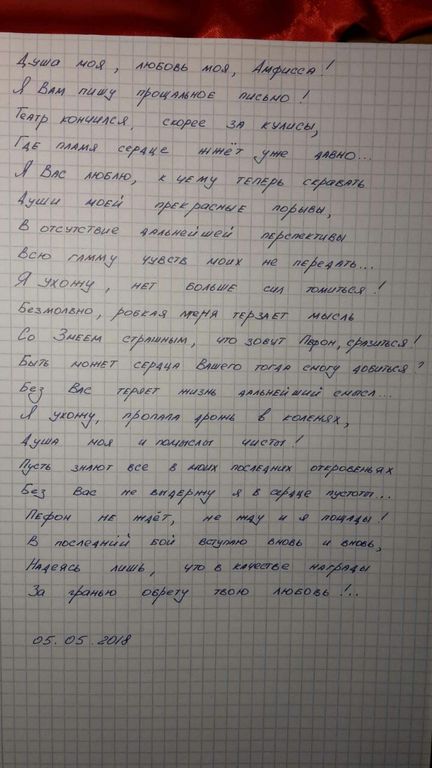 Душа моя, любовь моя, Амфисса!
Я Вам пишу прощальное письмо!
Театр кончился, скорее за кулисы,
Где пламя сердце жжёт уже давно...
Я Вас люблю, к чему теперь скрывать
Души моей прекрасные порывы,
В отсутствие дальнейшей перспективы
Всю гамму чувств моих не передать...
Я ухожу, нет больше сил томиться!
Безмолвно, робкая меня терзает мысль
Со Змеем страшным, что зовут Пефон, сразиться!
Быть может сердца Вашего тогда смогу добиться?
Без Вас теряет жизнь дальнейший смысл...
Я ухожу, пропала дрожь в коленях,
Душа моя и помыслы чисты!
Пусть знают все в моих последних откровеньях
Без Вас не выдержу я в сердце пустоты...
Пефон не ждёт, не жду и я пощады!
В последний бой вступаю вновь и вновь,
Надеясь лишь, что в качестве награды
За гранью обрету твою любовь!..
05.05.2018